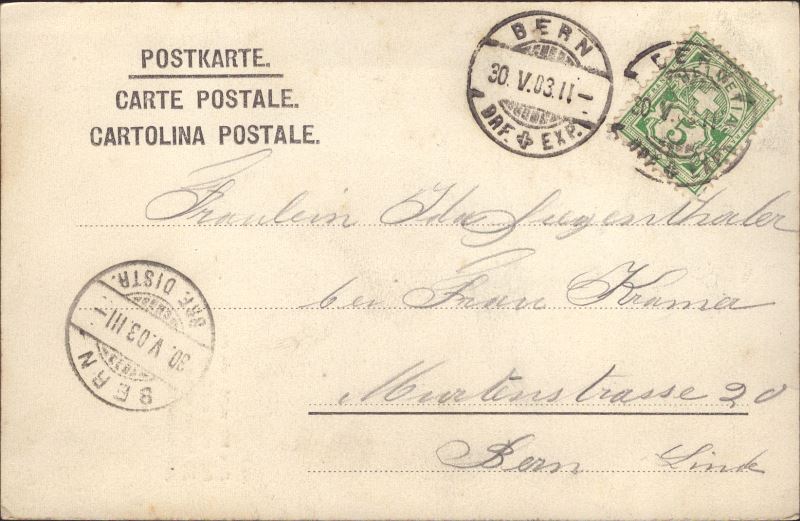 POSTKARTE.
CARTE POSTALE.
CARTOLINA POSTALE.
BERN
30. V. 03. II–
BRF. EXP.
HELVETIA
5
Fräulein Ida Siegenthaler
bei Frau Kramer
Murtenstrasse 20
Bern
BRF. DISTR.
30. V. 03. III–
BERN